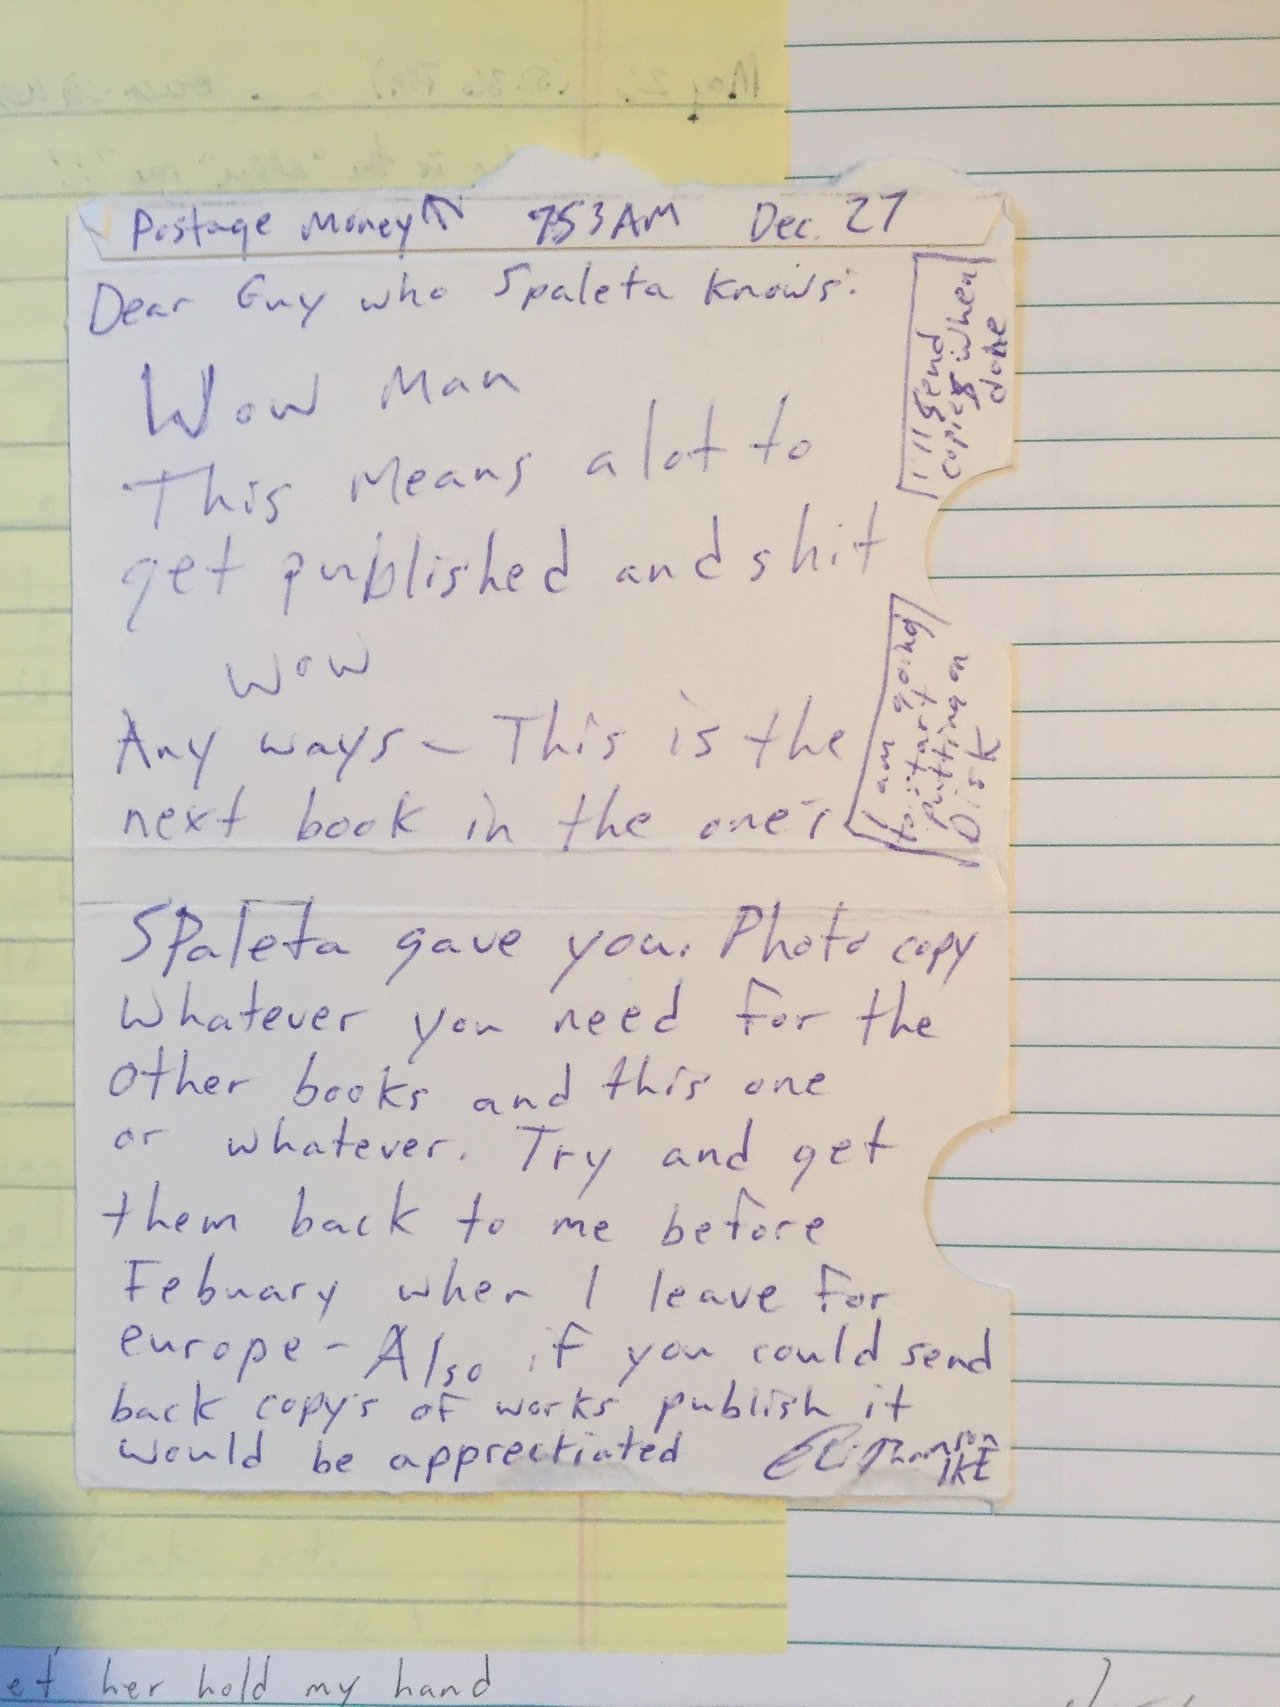 Postage Money↑ 753AM Dec. 27
Dear Guy who Spaleta knows:
Wow Man
This Means a lot to
get published and shit
wow
Any ways - This is the
next book in the one's
Spaleta gave you. Photo copy
Whatever you need for the
other books and this one
or whatever. Try and get
them back to me before
Febuary when I leave for
europe - Also if you could send
back copy's of works publish it
would be apprectiated
I'll send
copies when
done
I am going
to start
putting on
Disk
her hold my hand